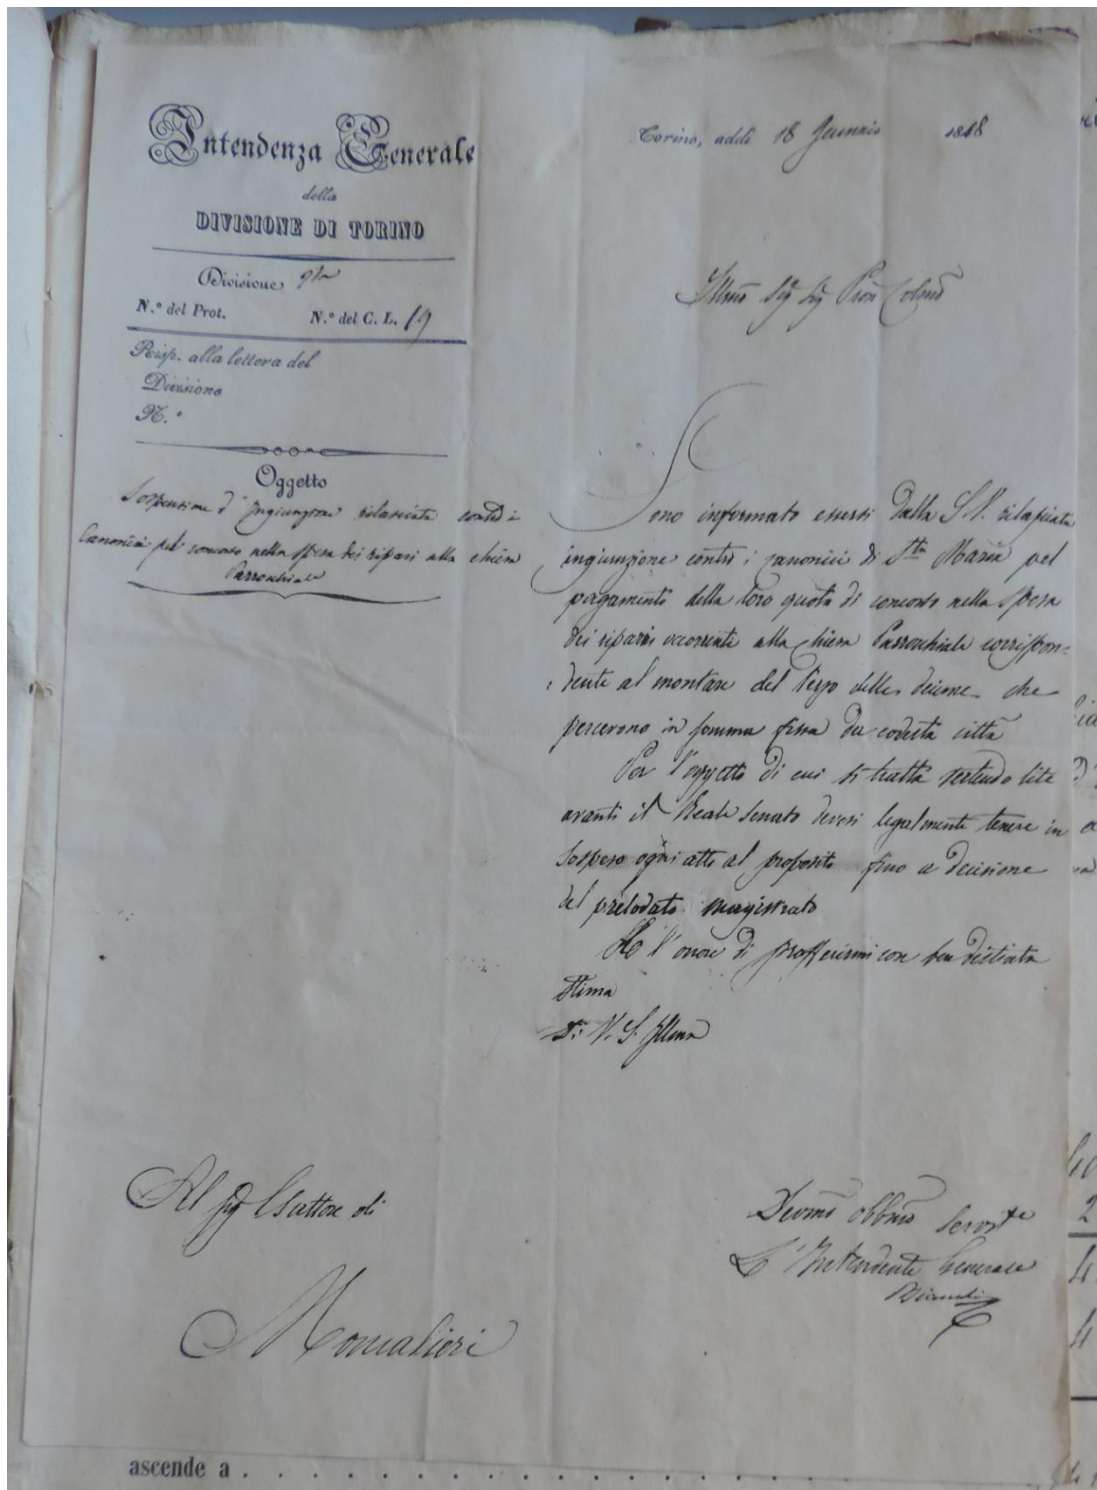 Intendenza Generale
della
DIVISIONE DI TORINO
Divisione
N.º del Prot. N.º del C. L. 19
Risp. alla lettera del
Divisione
N.º
Oggetto
Sospensione d'Ingiunzione rilasciata contro i
Canonici pel concorso nella spesa dei ripari alla chiesa
Parrochiale
Torino, addi 18 Gennaio 1848
Illmo Sig Sig Pron Colmo
Sono informato essersi dalla S.V. rilasciata
ingiunzione contro i canonici di Sta Maria pel
pagamento della loro quota di concorso nella spesa
dei ripari occorrenti alla chiesa Parrochiale corrispon=
dente al montare del terzo delle decime che
percevono in somma fissa da codesta città
Per l'oggetto di cui si tratta vertendo lite
avanti il Reale Senato devesi legalmente tenere in
sospeso ogni atto al proposito fino a decisione
del prelodato magistrato
Ho l'onore di profferirmi con ben distinta
stima
Di V. S. Illma
Al Sig Esattore di
Moncalieri
Devmo obbmo Servre
L'Intendente Generale
ascende a . . . . . . . . . . . . . . . .